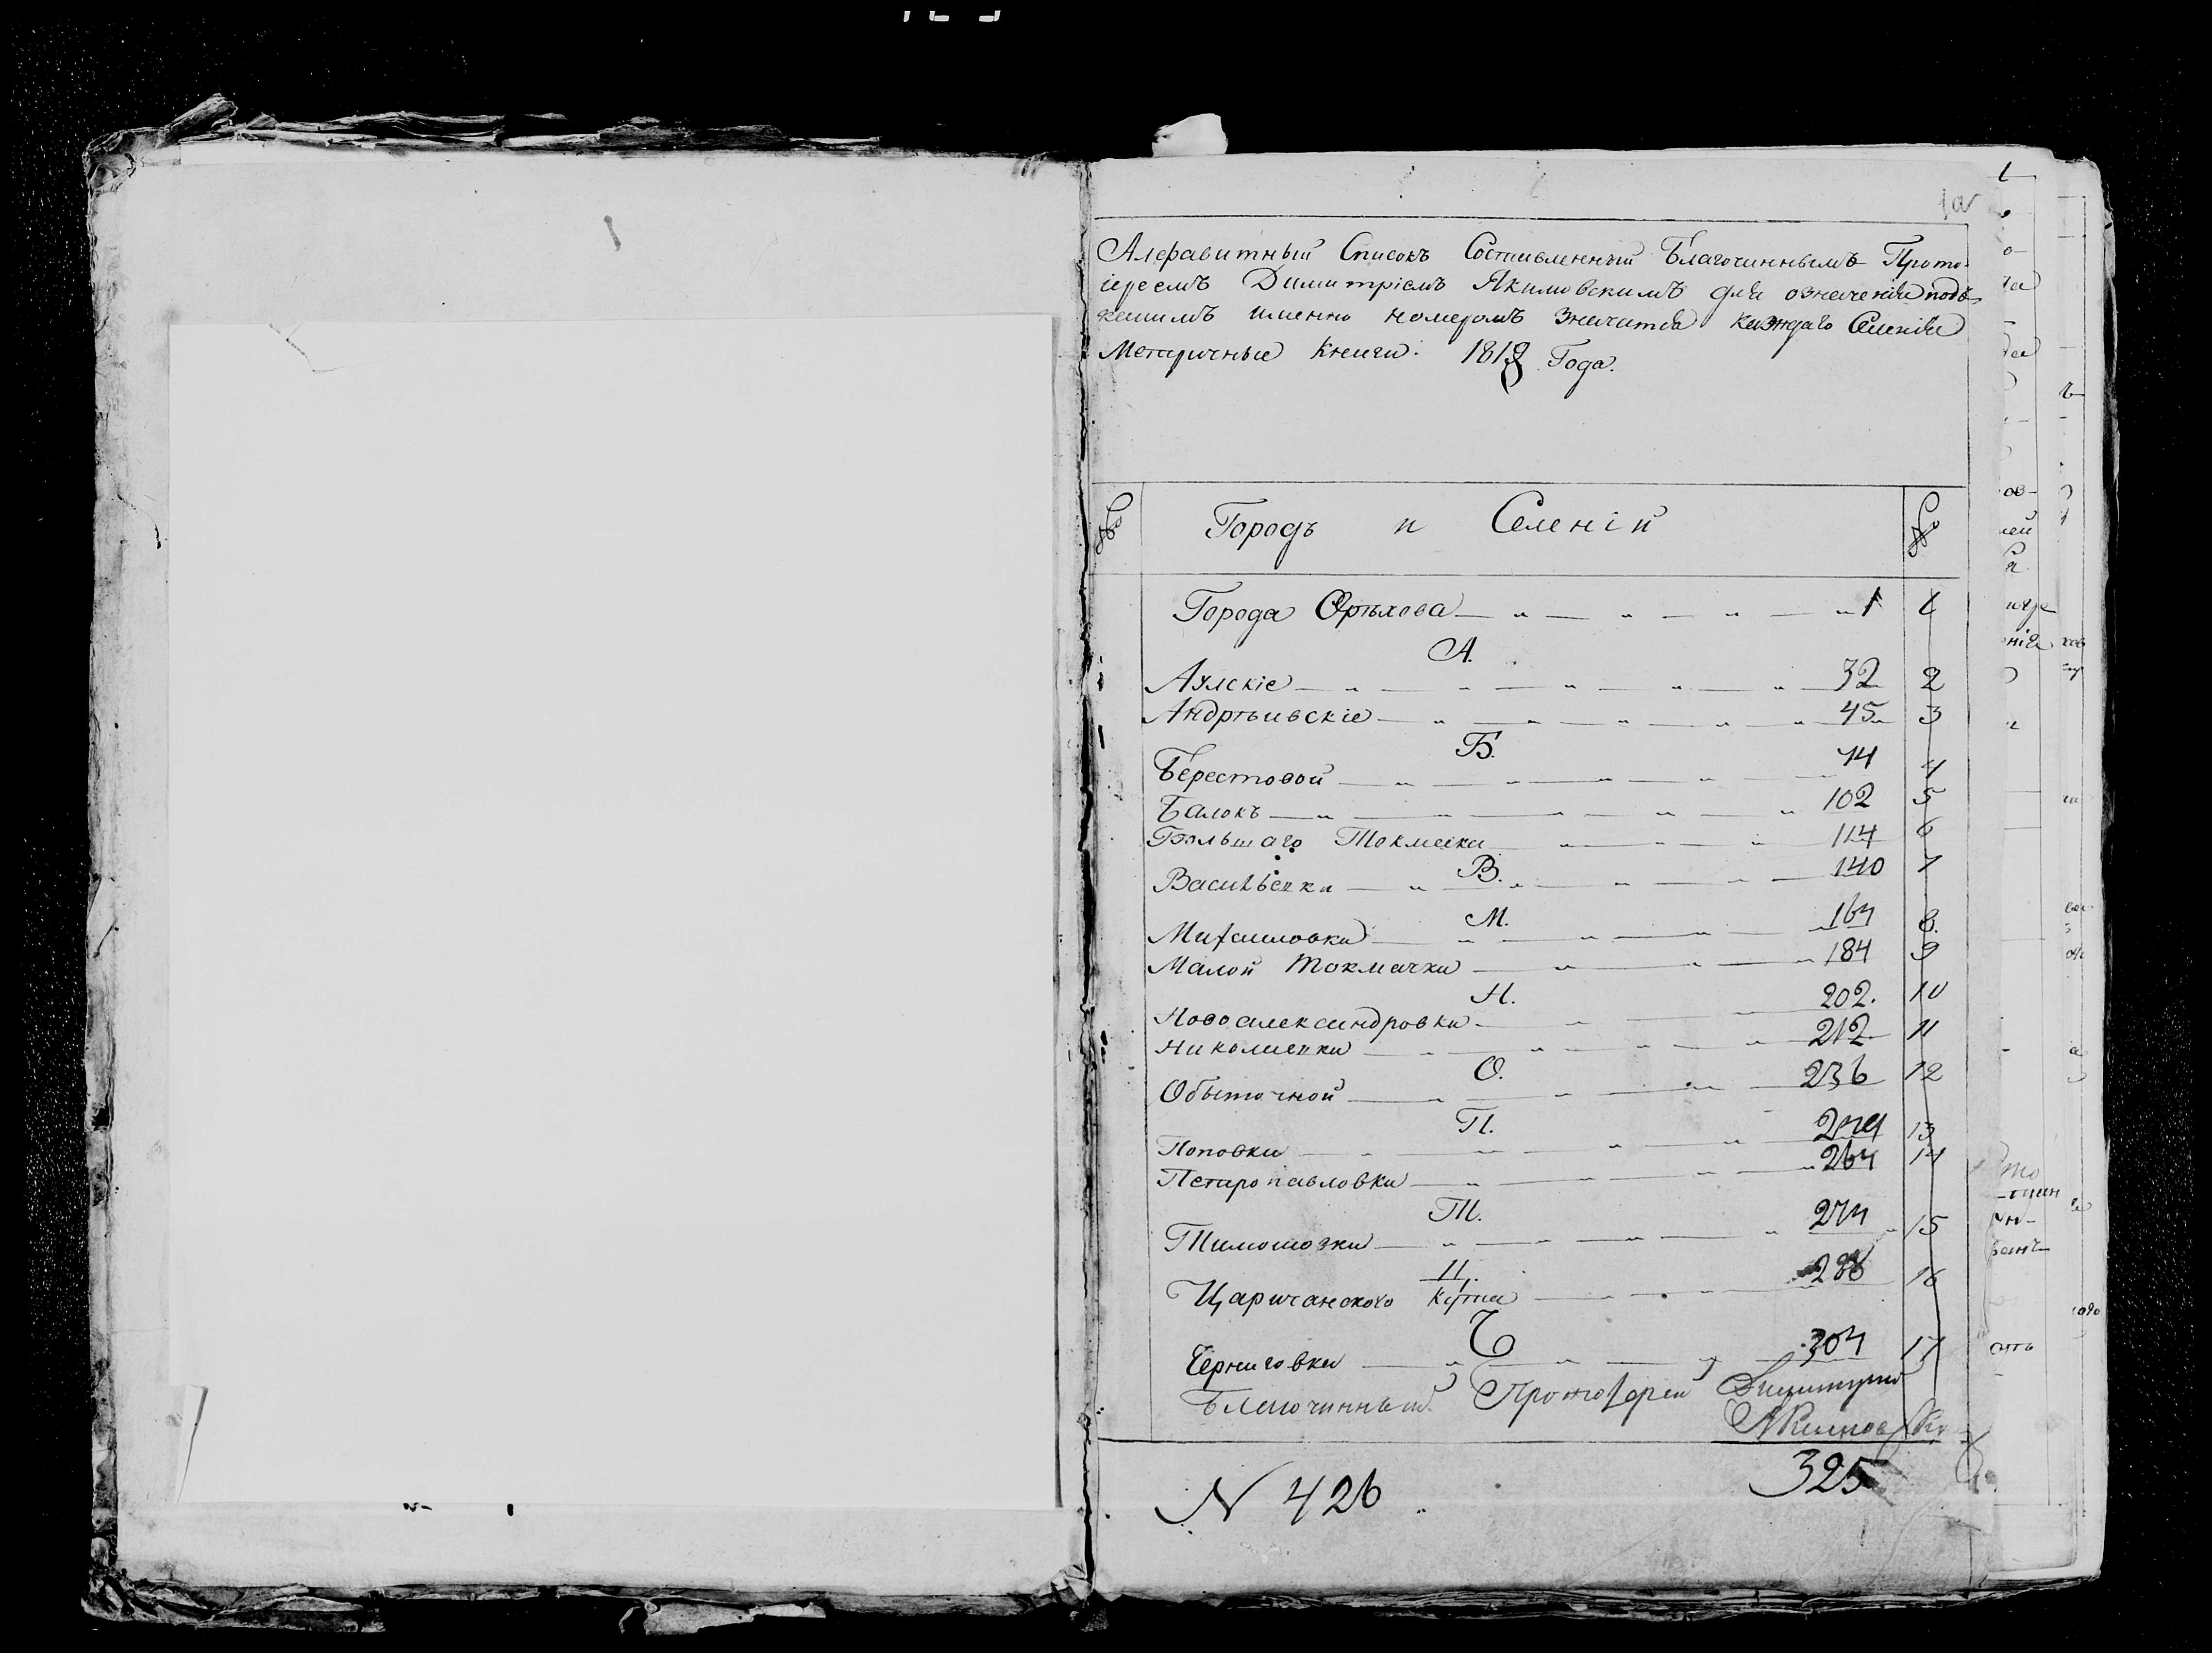 1а
Алфавитный Списокъ Составленный Благочиннымъ Прото-
іереемъ Димитріемъ Якимовскимъ для означенія подъ
какимъ именно номеромъ значатся каждаго Селенія
Метричныя Книги. 1818 Года.
№ Городъ и Селеній №
Города Орѣхова 1 1
А.
Аулскіе 32 2
Андрѣивскіе 45 3
Б.
Берестовой 74 4
Балокъ 102 5
Большаго Токмака 114 6
В.
Васильевки 140 7
М.
Михаиловки 164 8.
Малой Токмачки 184 9
Н.
Новоалександровки 202. 10
Николаевки 212. 11
О.
Обыточной 236 12
П.
Поповки 13
Петропавловки 264 14
Т.
Тимошовки 274 15
Ц.
Царичанского Кута 288 16
Ч
Черниговки 304 17
Благочинный Протоіерей Димитрій
Якимовскій
325
N 426